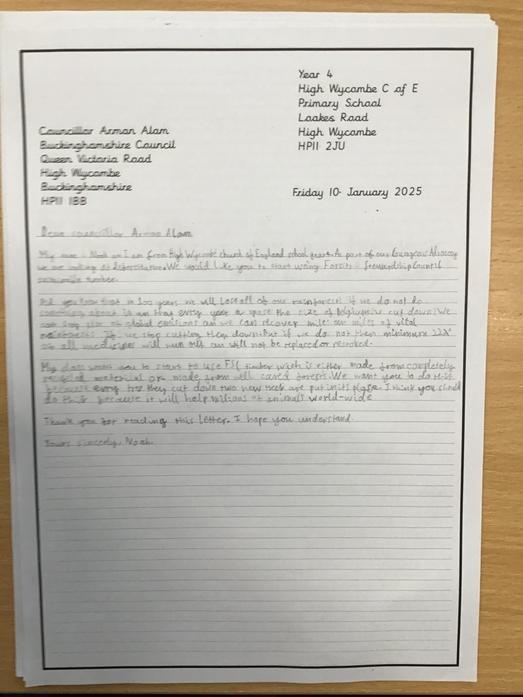 Year 4
High Wycombe C of E
Primary School
Loakes Road
High Wycombe
HP11 2JU
Councillor Arman Alam
Buckinghamshire Council
Queen Victoria Road
High Wycombe
Buckinghamshire
HP11 1BB
Friday 10 January 2025
Dear councillor Arman Alam
My name is Noah an I am from High Wycombe church of England school. As part of our Courageous Advocacy
we are looking at deforestation. We would like you to start using Forest Stewardship Council
timber.
Did you know that in 100 years we will lose all of our rainforests if we do not do
something about is an that every year a space the size of is cut down. We
can stop of global an we can recover miles an miles of vital
rainforest if we stop cutting they down but if we do not then minimum
of all medicines will run out an will not be replaced or restocked.
My class wants you to start to use FSC timber wich is either made from completely
recycled material or made from well cared forest. We want you to do this
because every tree they cut down two new are put in its place. I think you should
do this because it will help of animals world-wide
Thank you for reading this Letter. I hope you understand.
Yours sincerely, Noah.